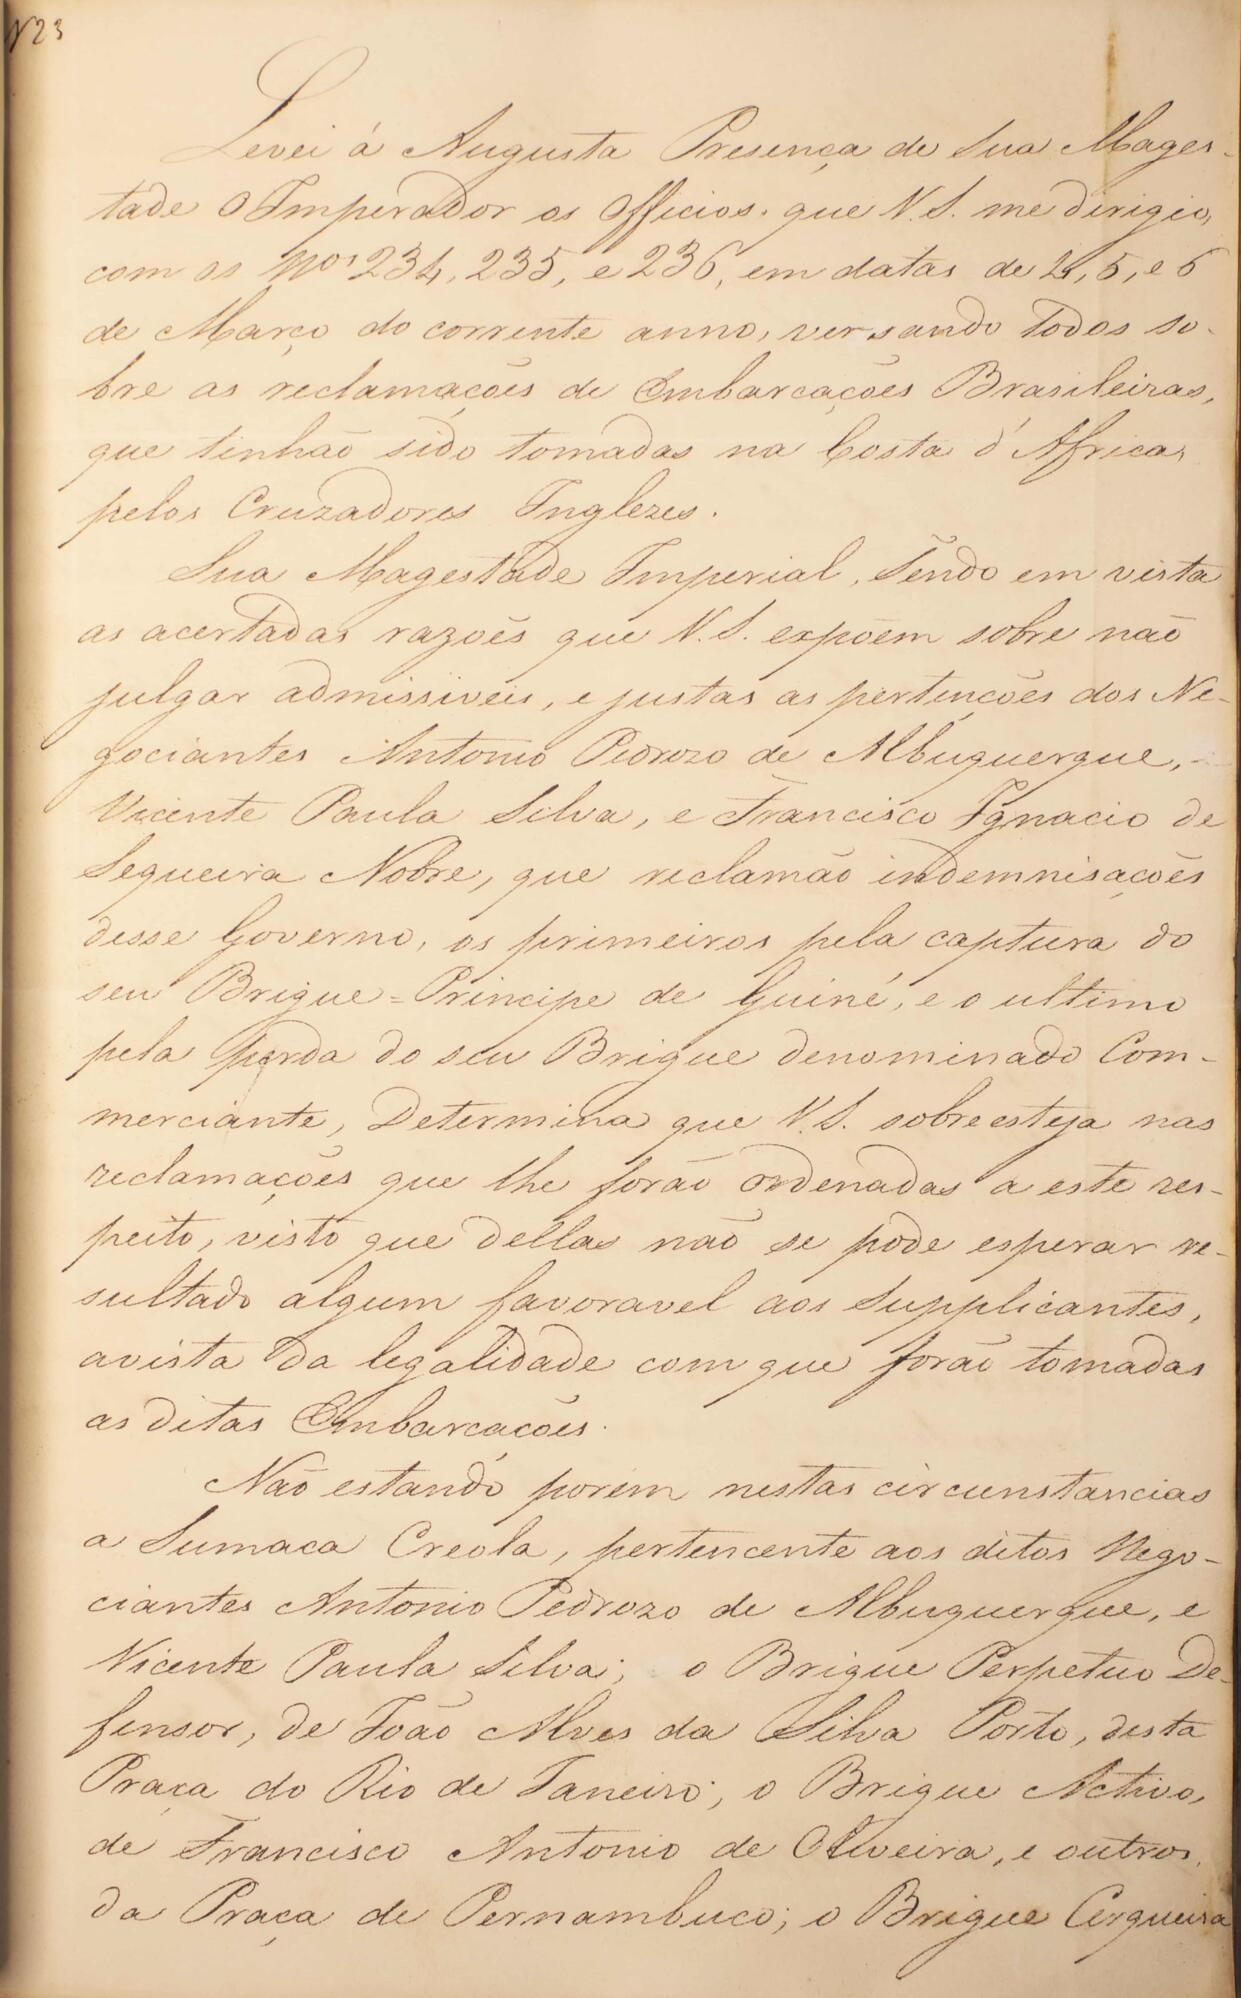 N 23
Levei á Augusta Presença de Sua Mages-
tade O Imperador os Officios, que V.S. me dirigio,
com os Nos 234, 235, e 236, em datas de 4, 5, e 6
de Março do corrente anno, versando todos so-
bre as reclamações de Embarcações Brasileiras,
que tinhão sido tomadas na Costa d'Africa,
pelos Cruzadores Inglezes.
Sua Magestade Imperial, Tendo em vista
as acertadas razoẽs que V.S. expoem sobre não
julgar admissiveis, e justas as pertenções dos Ne-
gociantes Antonio Pedrozo de Albuquerque,
Vicente Paula Silva, e Francisco Ignacio de
Sequeira Nobre, que reclamão indemnisações
desse Governo, os primeiros pela captura do
seu Brigue = Principe de Guiné, e o ultimo
pela perda do seu Brigue denominado Com-
merciante, Determina que V.S. sobreesteja nas
reclamações que lhe forão ordenadas a este res-
peito, visto que dellas não se pode esperar re-
sultado algum favoravel aos Supplicantes,
avista da legalidade com que forão tomadas
as ditas Embarcações.
Não estando porem nestas circunstancias
a Sumaca Creola, pertencente aos ditos Nego-
ciantes Antonio Pedrozo de Albuquerque, e
Vicente Paula Silva; o Brigue Perpetuo De-
fensor, de João Alves da Silva Porto, desta
Praça do Rio de Janeiro; o Brigue Activo,
de Francisco Antonio de Oliveira, e outros,
da Praça de Pernambuco; o Brigue Cerqueira